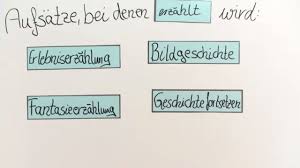 Aufsätze, bei denen erzählt wird:
Erlebniserzählung Bildgeschichte
Fantasieerzählung Geschichte fortsetzen